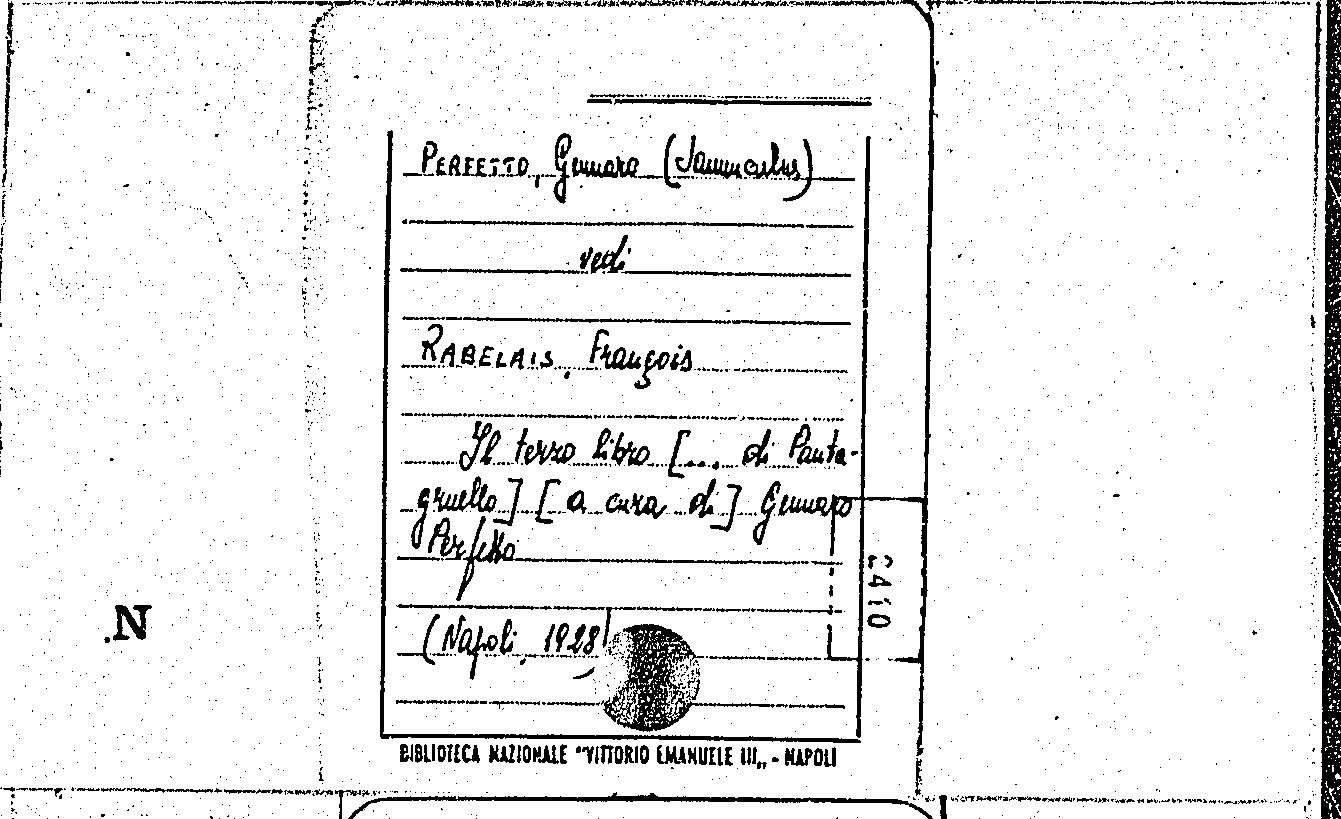 PERFETTO, Gennaro (Janunculus)
vedi
RABELAIS, François
Il terzo libro [... di Panta-
gruello] [a cura di] Gennaro
Perfetto
(Napoli, 1928)
2410
.N
BIBLIOTECA NAZIONALE "VITTORIO EMANUELE III„ - NAPOLI